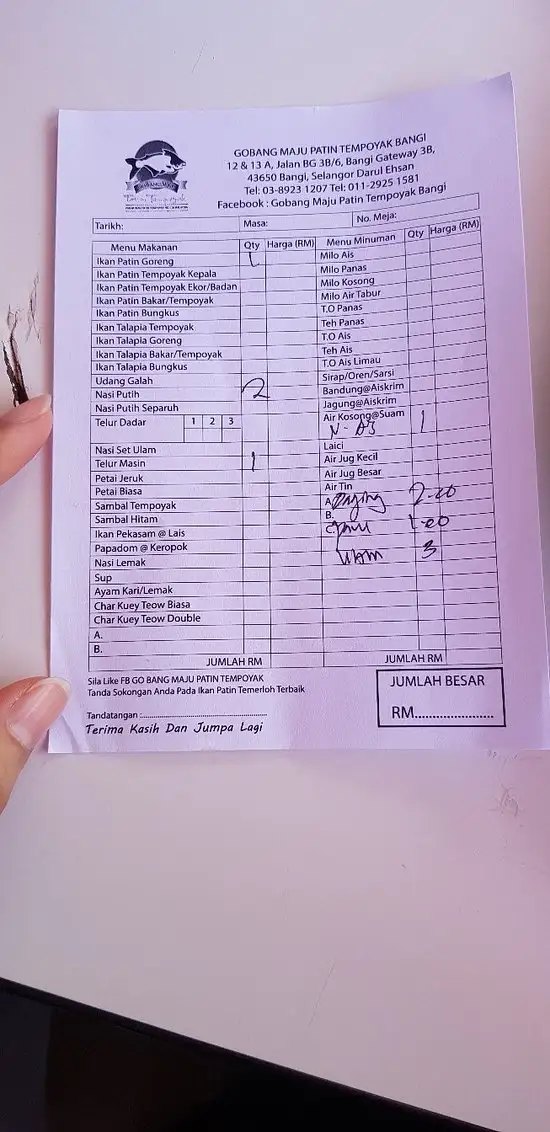 GOBANG MAJU PATIN TEMPOYAK BANGI
12 & 13 A, Jalan BG 3B/6, Bangi Gateway 3B,
43650 Bangi, Selangor Darul Ehsan
Tel: 03-8923 1207 Tel: 011-2925 1581
Facebook : Gobang Maju Patin Tempoyak Bangi
GOBANG MAJU
Tarikh: Masa: No. Meja:
Menu Makanan Qty Harga (RM) Menu Minuman Qty Harga (RM)
Ikan Patin Goreng 1 Milo Ais
Ikan Patin Tempoyak Kepala Milo Panas
Ikan Patin Tempoyak Ekor/Badan Milo Kosong
Ikan Patin Bakar/Tempoyak Milo Air Tabur
Ikan Patin Bungkus T.O Panas
Ikan Talapia Tempoyak Teh Panas
Ikan Talapia Goreng T.O Ais
Ikan Talapia Bakar/Tempoyak Teh Ais
Ikan Talapia Bungkus T.O Ais Limau
Udang Galah Sirap/Oren/Sarsi
Nasi Putih 2 Bandung@Aiskrim
Nasi Putih Separuh Jagung@Aiskrim
Telur Dadar 1 2 3 Air Kosong@Suam 1
Nasi Set Ulam Laici
Telur Masin 1 Air Jug Kecil
Petai Jeruk Air Jug Besar
Petai Biasa Air Tin
Sambal Tempoyak A. 2-00
Sambal Hitam B.
Ikan Pekasam @ Lais C. 1-00
Papadom @ Keropok Ulam 3
Nasi Lemak
Sup
Ayam Kari/Lemak
Char Kuey Teow Biasa
Char Kuey Teow Double
A.
B.
JUMLAH RM JUMLAH RM
Sila Like FB GO BANG MAJU PATIN TEMPOYAK
Tanda Sokongan Anda Pada Ikan Patin Temerloh Terbaik
JUMLAH BESAR
RM......................
Tandatangan :...................................
Terima Kasih Dan Jumpa Lagi